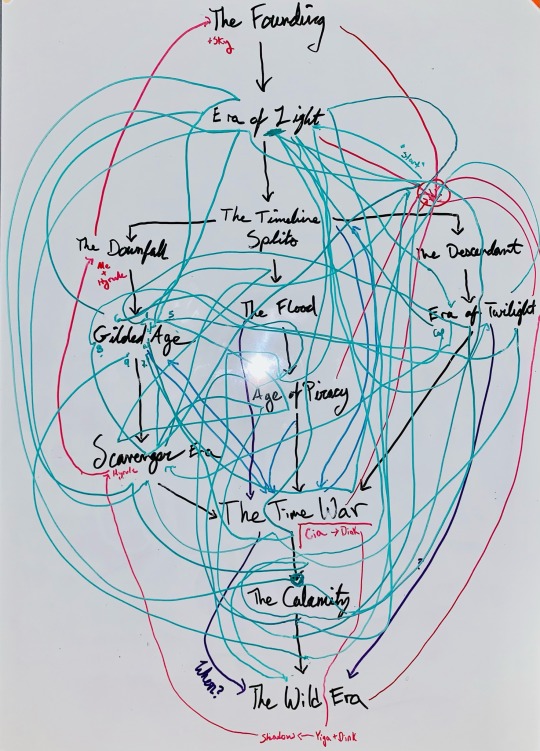 The Founding
+Sky
Era of Light
"Start"
The Timeline
Splits
The Downfall
The Descendant
Me
+
Hyrule
The Flood
Era of Twilight
Gilded Age
Age of Piracy
Scavenger Era
Hyrule
The Time War
Cia → Dink
?
The Calamity
When?
The Wild Era
Shadow ← Yiga + Dink